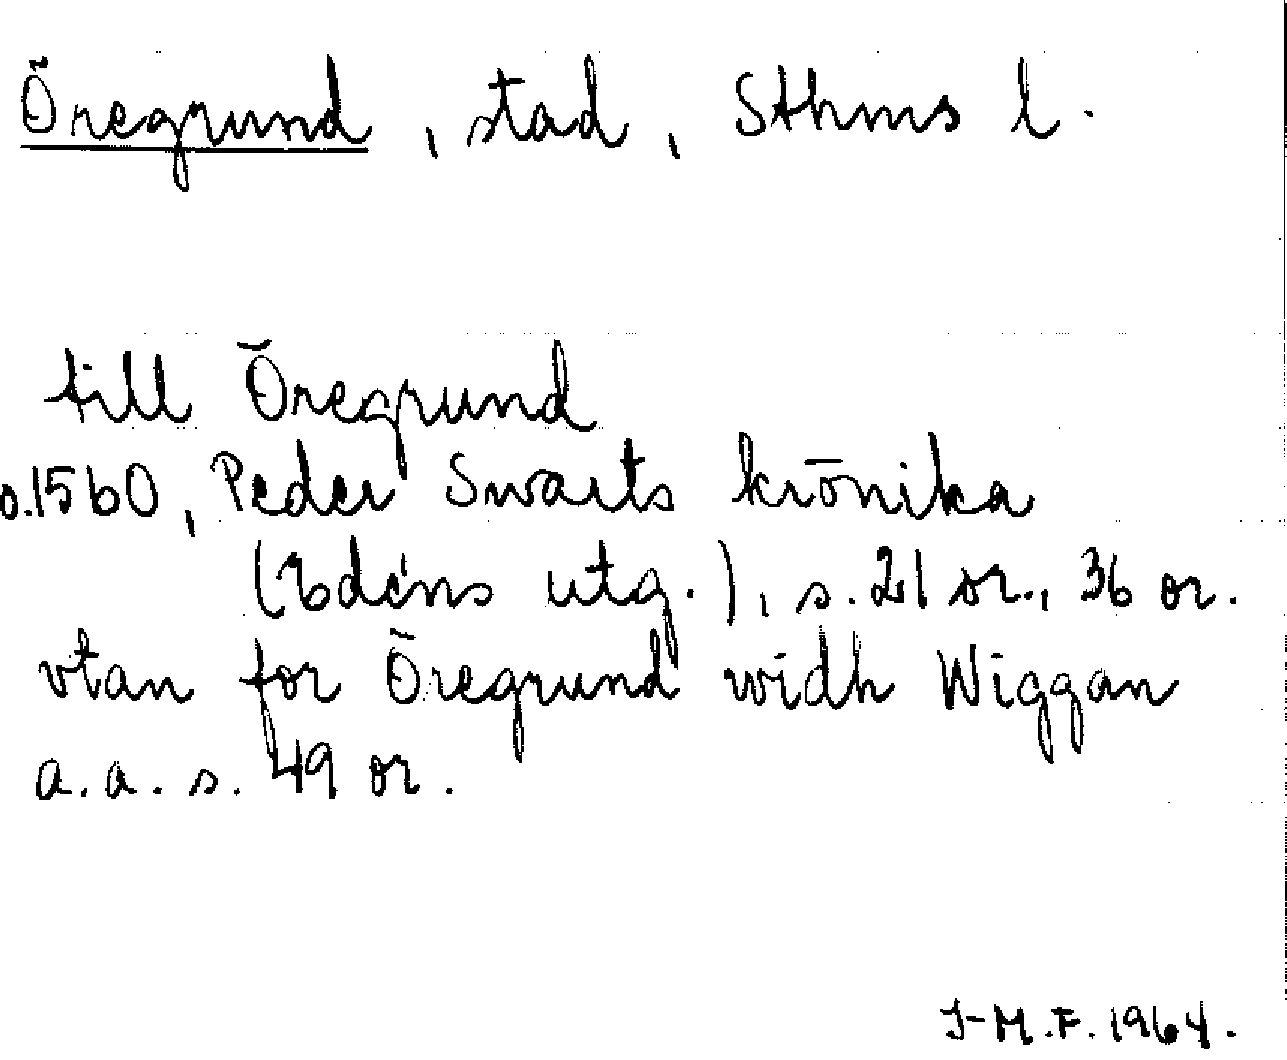 Öregrund, stad, Sthms l.
till Öregrund
o.1560, Peder Swarts krönika
(Edéns utg.), s. 21 or., 36 or.
vtan for Öregrund widh Wiggan
a.a. s. 49 or.
I-M.F. 1964.